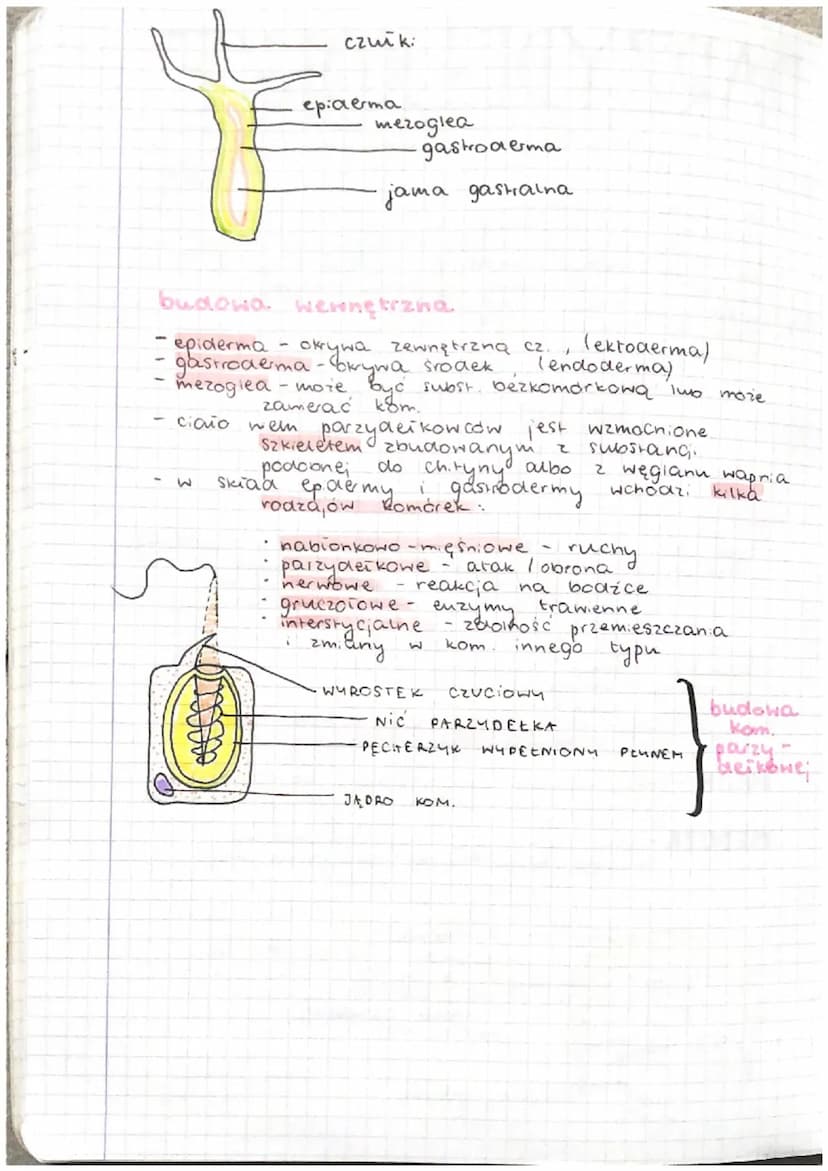 czułki
epiderma
mezoglea
gastroderma
jama gastralna
budowa wewnętrzna
- epiderma - okrywa zewnętrzną cz., (ektoderma)
- gastroderma - okrywa środek, (endoderma)
- mezoglea - może być subst. bezkomórkową lub może
zawierać kom.
- ciało wem parzydełkowców jest wzmocnione
szkieletem zbudowanym z substancji
podobnej do chityny albo z węglanu wapnia
- w skład epidermy i gastrodermy wchodzi kilka
rodzajów komórek:
· nabłonkowo-mięśniowe - ruchy
· parzydełkowe - atak / obrona
· nerwowe - reakcja na bodźce
· gruczołowe - enzymy trawienne
· interstycjalne - zdolność przemieszczania
i zmiany w kom. innego typu
WYROSTEK CZUCIOWY
NIĆ PARZYDEŁKA
PĘCHERZYK WYPEŁNIONY PŁYNEM
JĄDRO KOM.
budowa
kom.
parzy-
dełkowej